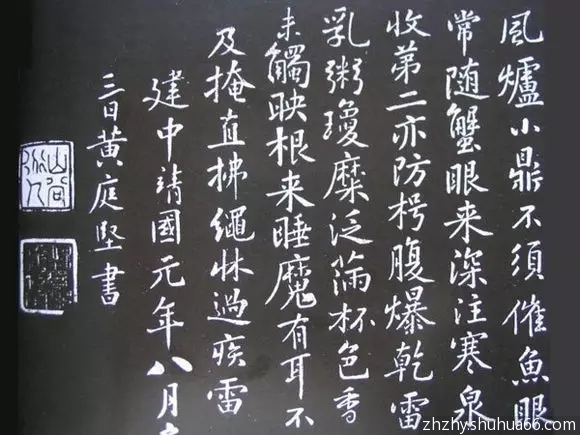 風爐小鼎不須催魚眼
常随蟹眼来深注寒泉
收第二亦防枵腹爆乾雷
乳粥瓊糜泛滿杯色香
未觸映根来睡魔有耳不
及掩直拂繩牀過疾雷
建中靖國元年八月
三日黄庭堅書
山谷道人
zhzhyshuhua66.com